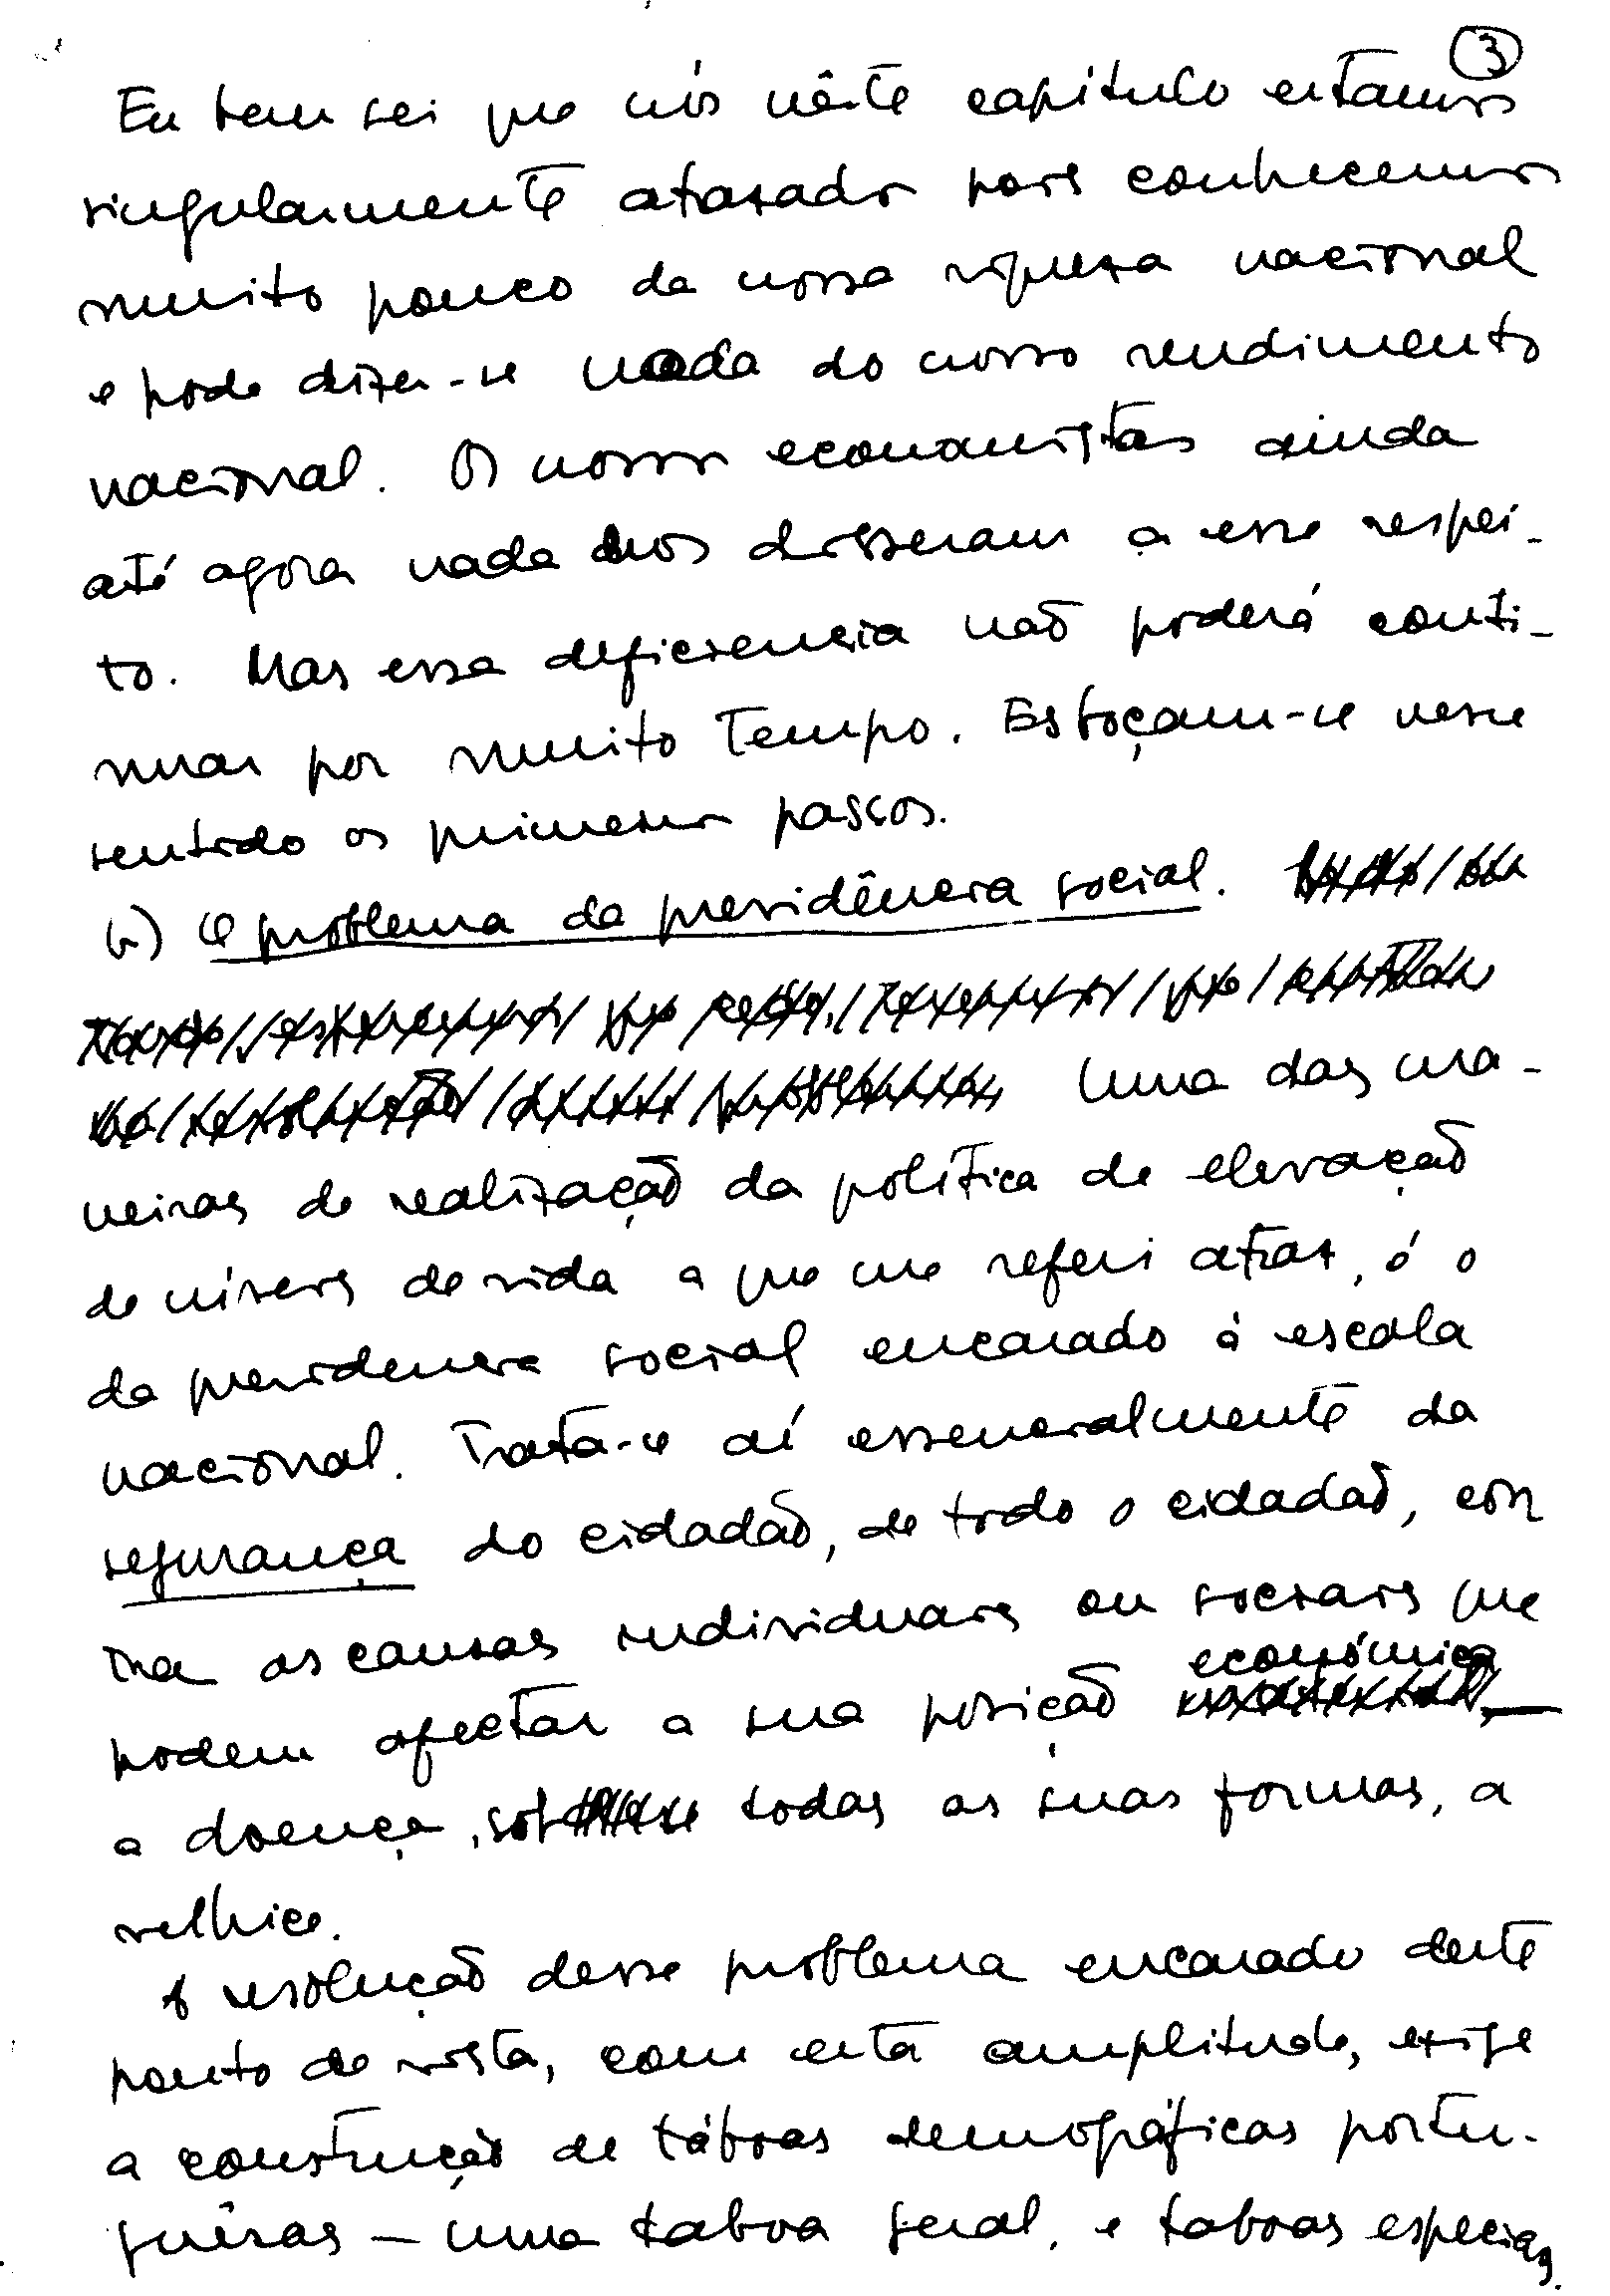 3
Eu bem sei que nós nêste capítulo estamos
singularmente atrasados pois conhecemos
muito pouco da nossa riqueza nacional
e pode dizer-se nada do nosso rendimento
nacional. Os nossos economistas ainda
até agora nada nos disseram a esse respei-
to. Mas essa deficiencia não poderá conti-
nuar por muito tempo. Esboçam-se nesse
sentido os primeiros passos.
b) O problema da previdência social.
Uma das ma-
neiras de realização da política de elevação
de níveis de vida a que me referi atras, é o
da previdencia social encarado á escala
nacional. Trata-se aí essencialmente da
segurança do cidadão, de todo o cidadão, con
tra as causas individuais ou sociais que
económica
podem afectar a sua posição —
a doença, sob todas as suas formas, a
velhice.
A resolução desse problema encarado deste
ponto de vista, com esta amplitude, exige
a construção de tábuas demográficas portu-
guêsas — uma tabua geral, e tabuas especiais.